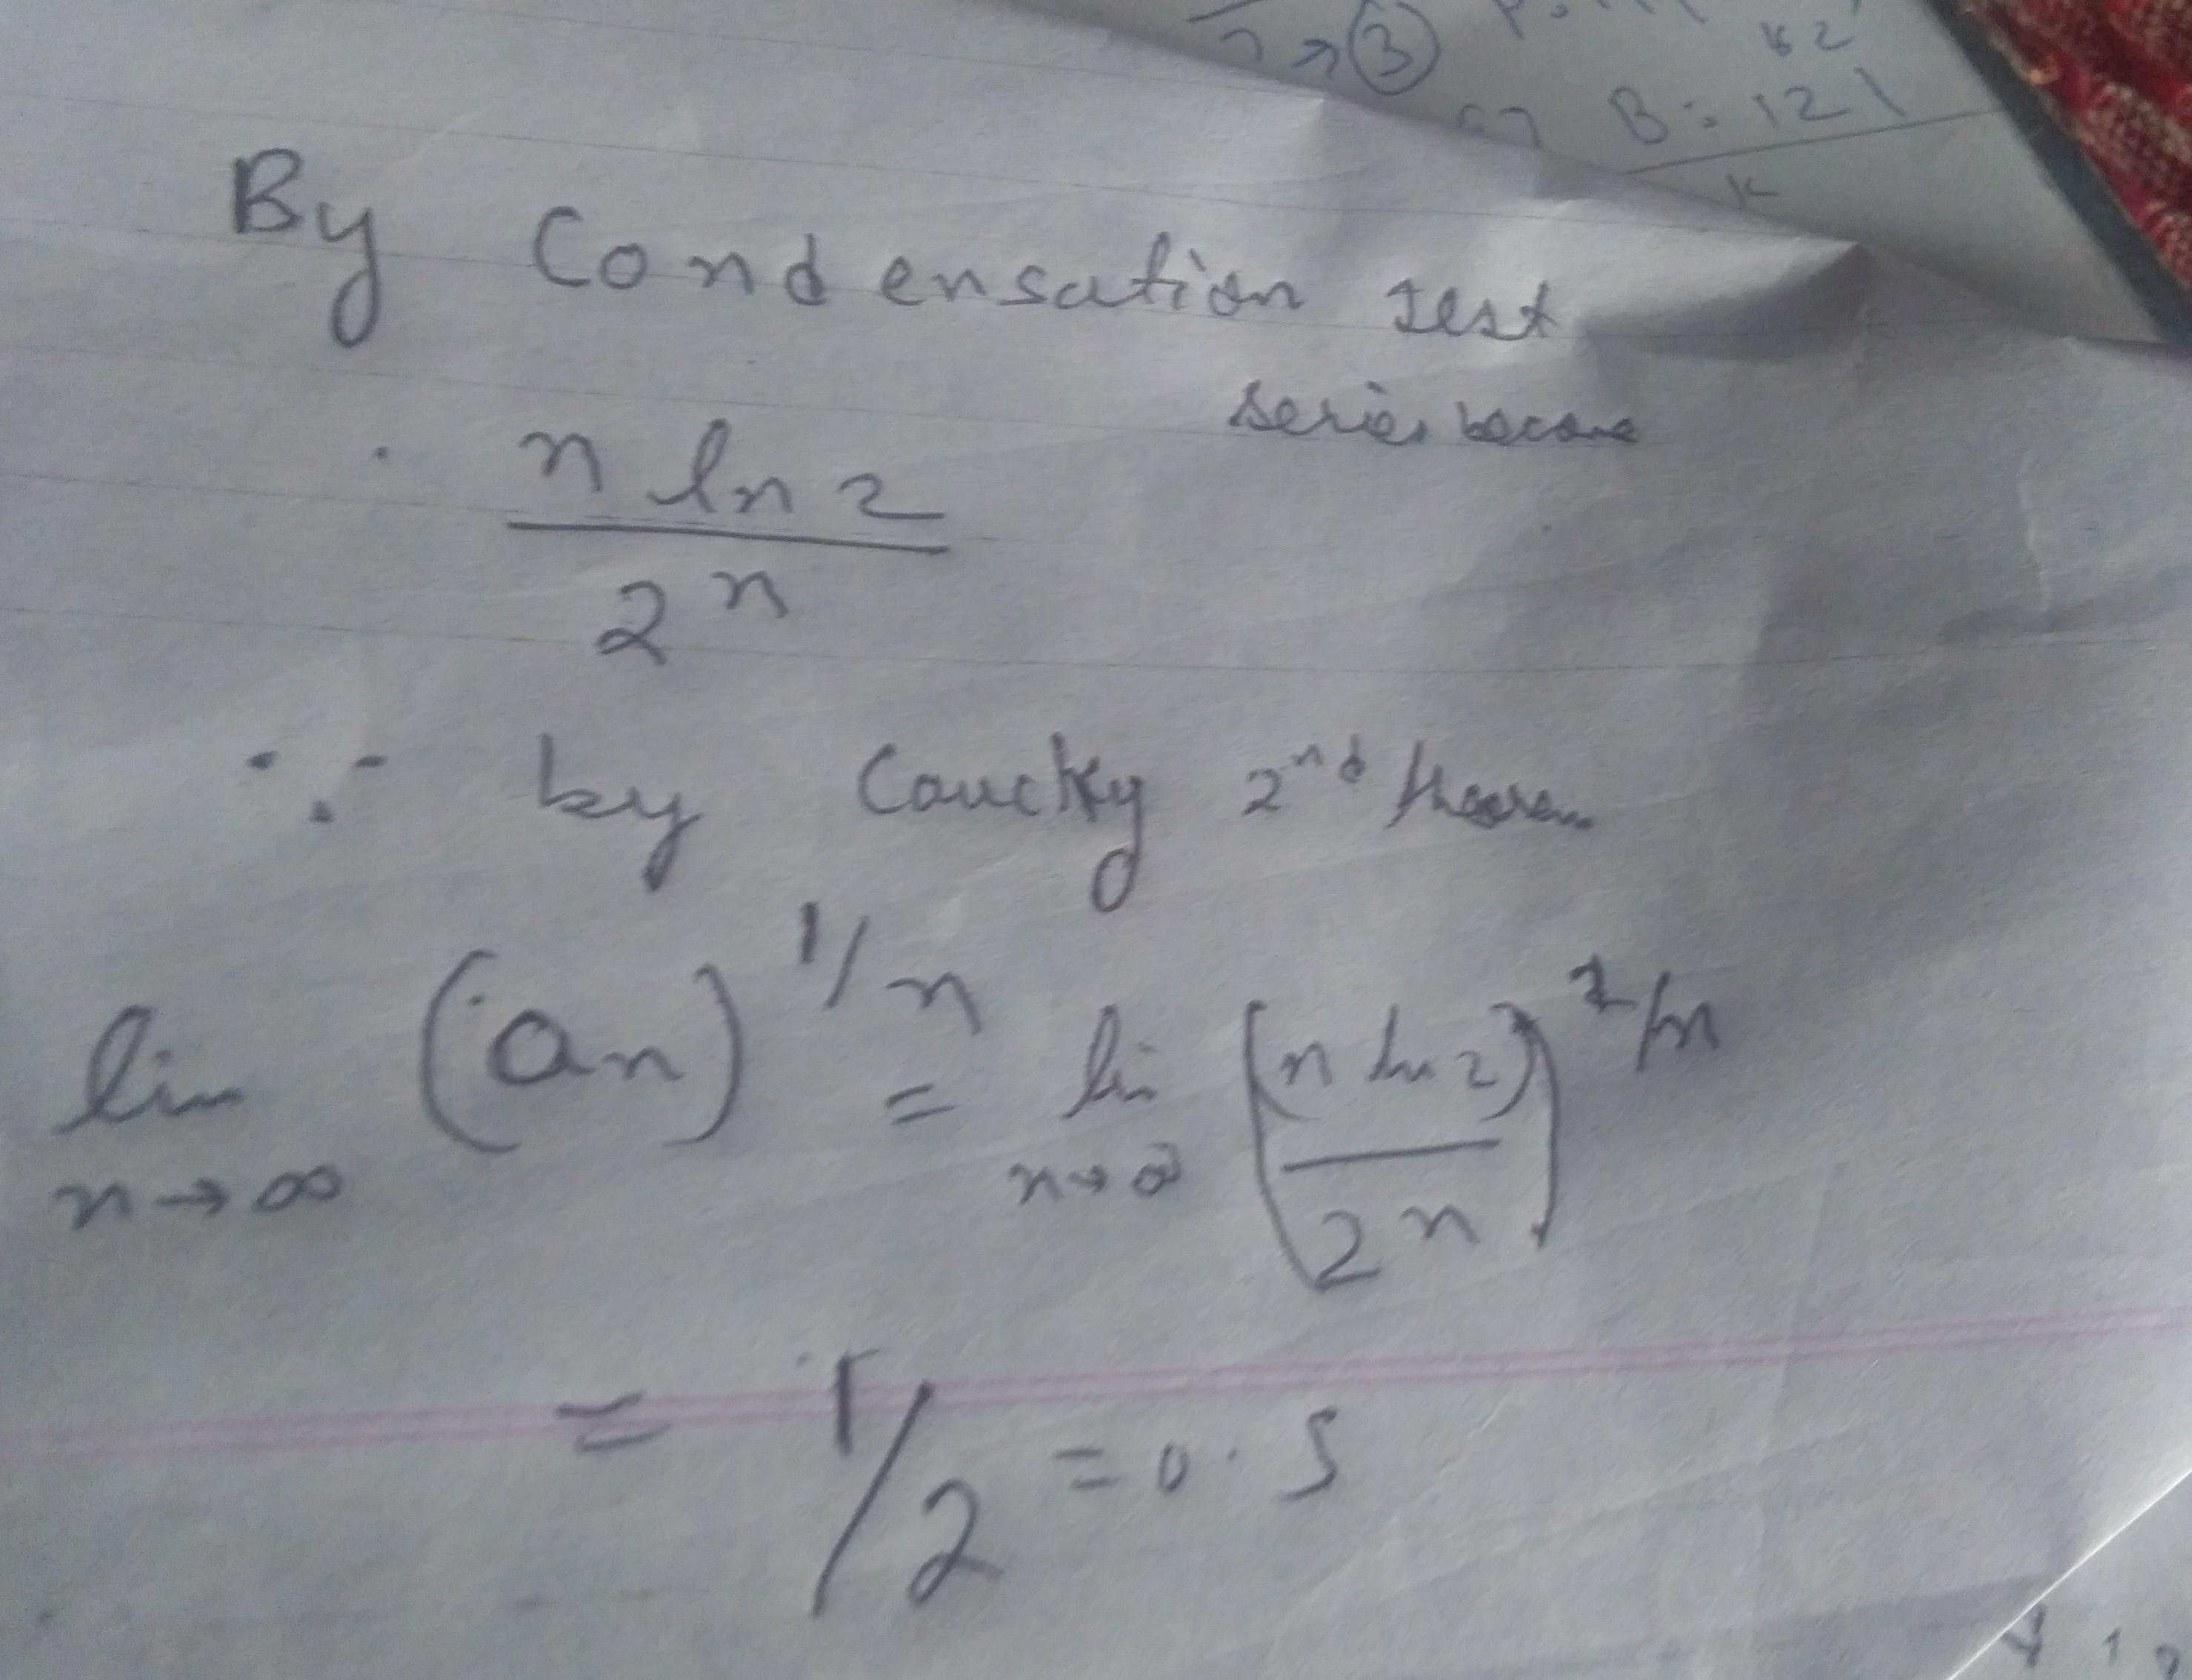 3
162
B = 121
K
By Condensation test
series become
n ln 2
2^n
∵ by Cauchy 2nd theorem
lim (an)^1/n = lim (n ln 2)^1/n
n→∞ n→∞ 2^n
= 1/2 = 0.5